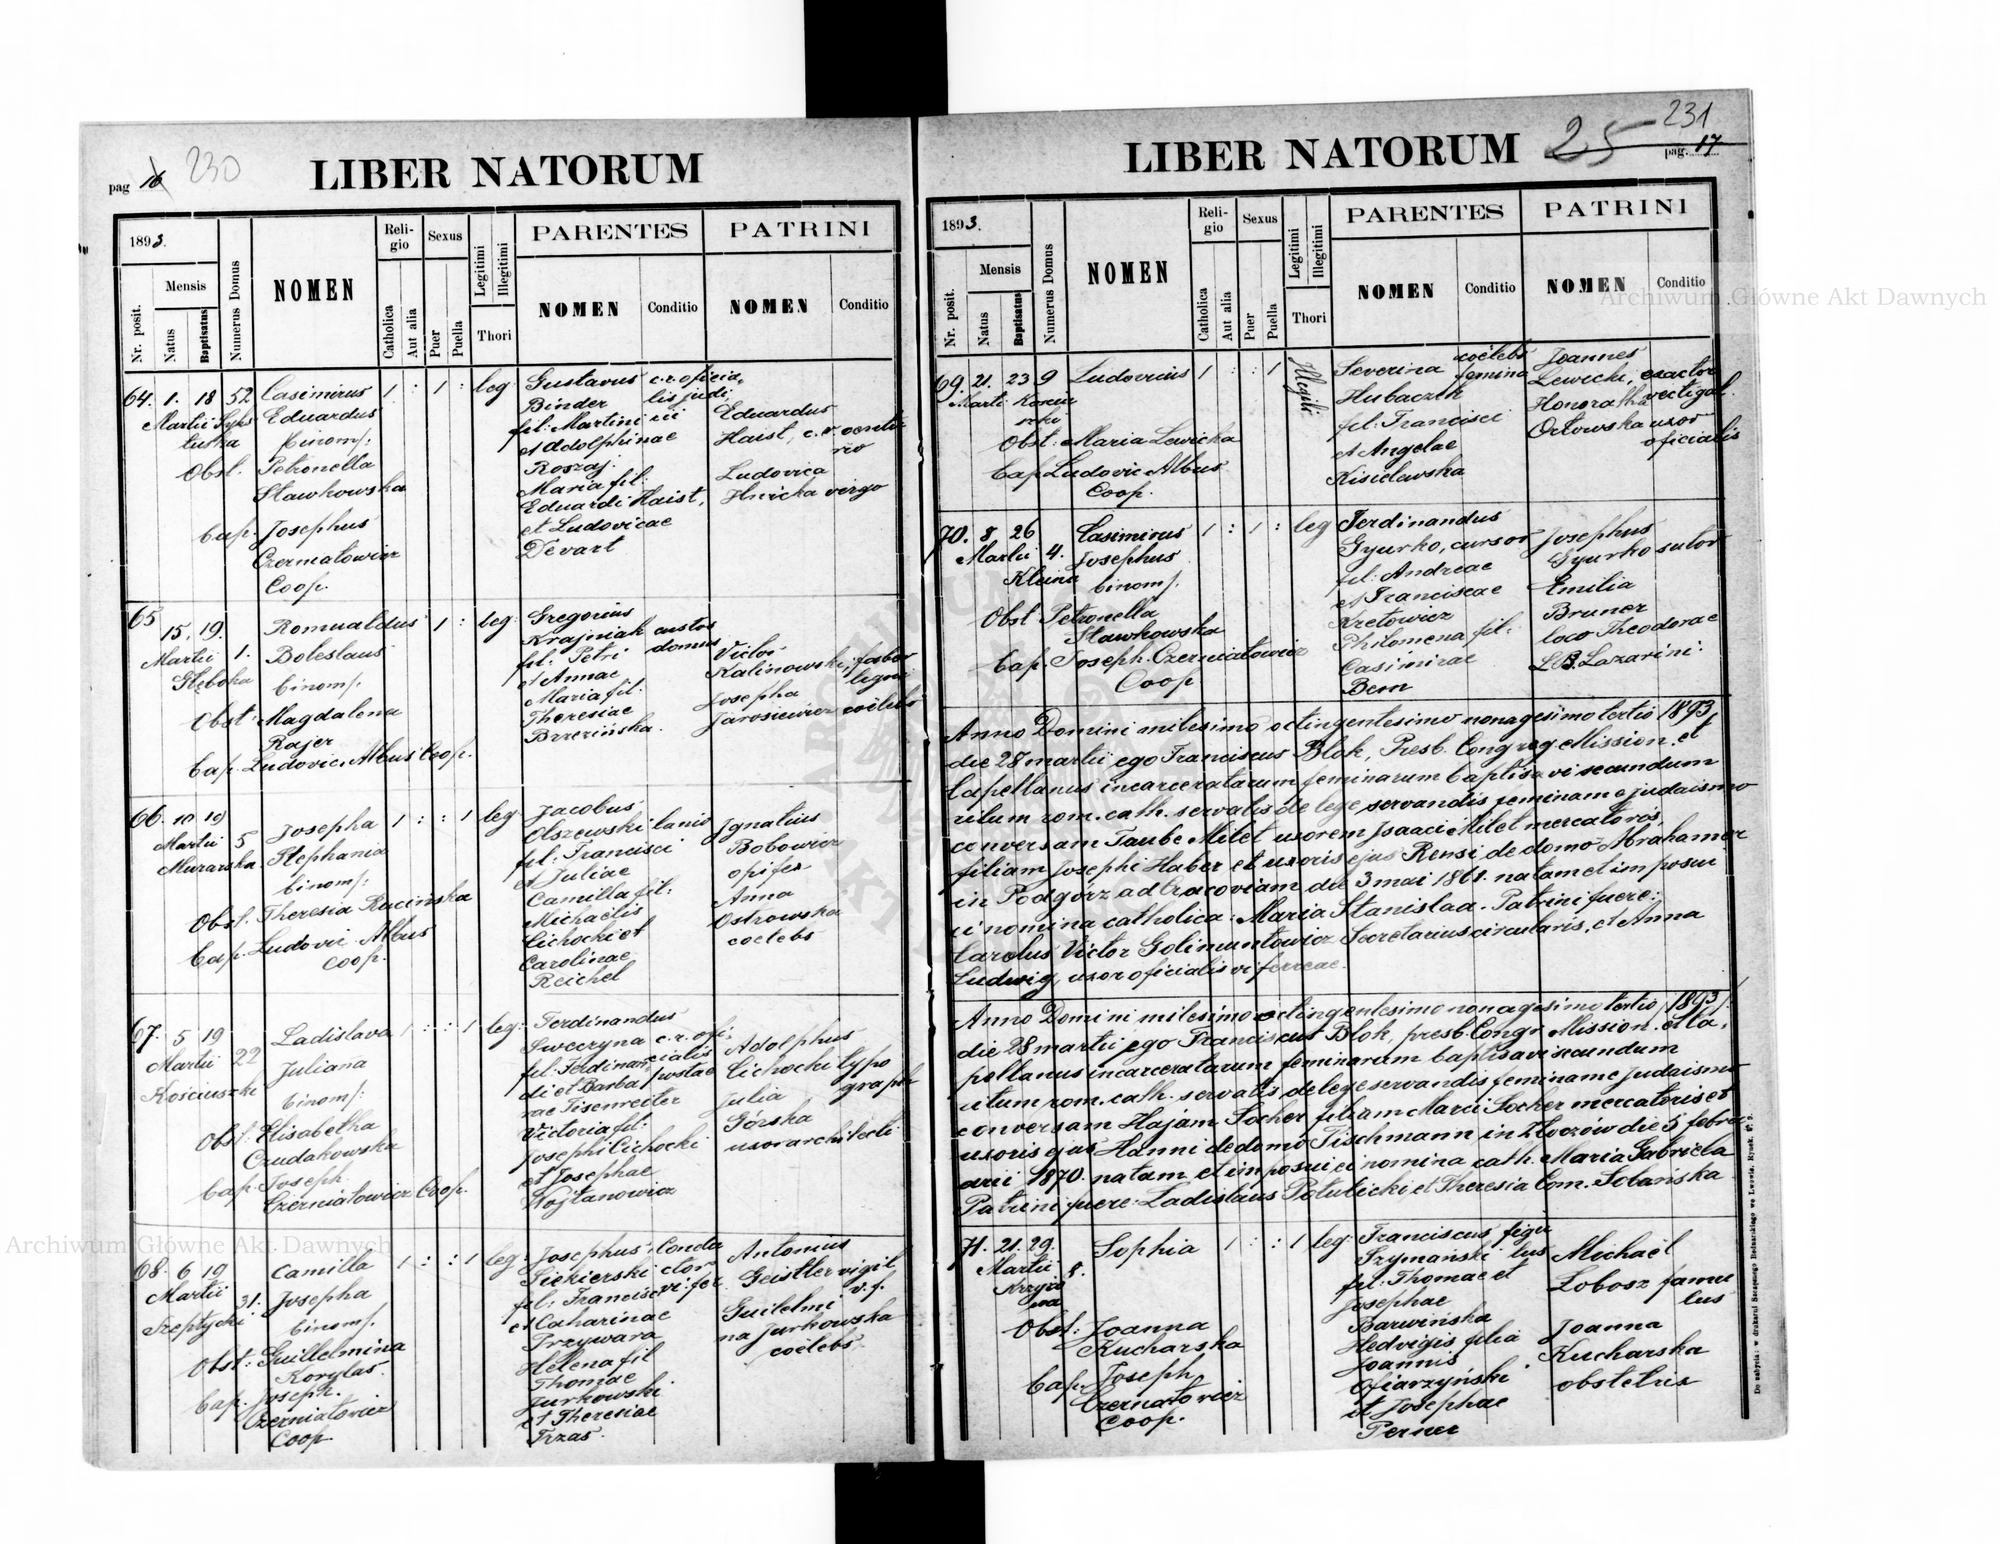 pag 16 230
LIBER NATORUM
1893.
Nr. posit.
Mensis
Natus
Baptisatus
Numerus Domus
NOMEN
Religio
Catholica
Aut alia
Sexus
Puer
Puella
Legitimi
Illegitimi
Thori
PARENTES
NOMEN
Conditio
PATRINI
NOMEN
Conditio
64. 1. 18 52 Casimirus 1 : 1 : leg
Martii
Eduardus
binom/:
Obst. Petronella
Sławkowska
bap. Josephus
Czerniatowicz
Coop.
Gustavus
Binder
fil: Martini
et Adolphinae
Roszaj.
Maria fil.
Eduardi Haist,
et Ludovicae
Devart
Eduardus
Haist, c. r.
Ludovica
virgo
65 15. 19. Romualdus 1 : leg.
Martii 1. Boleslaus
Głęboka binom/.
Obst. Magdalena
Rajer
bap. Ludovic. Albus Coop.
Gregorius
Krajniak custos
fil: Petri domus
et Annae
Maria fil.
Theresiae
Brzezińska.
Victor
Kalinowski, faber
Josepha
Jarosiewicz coelebs
66. 10 19 Josepha 1 : : 1 leg
Martii 5 Stephania
Murarska binom/:
Obst. Theresia Rucińska
bap. Ludovic. Albus
coop.
Jacobus
Olszewski lanio
fil: Francisci
et Juliae
Camilla fil:
Michaelis
Cichocki et
Carolinae
Reichel
Ignatius
Bobowicz
opifex
Anna
Ostrowska
coelebs
67. 5 19 Ladislava 1 : : 1 leg
Martii 22 Juliana
Kościuszki binom/:
Obst. Elisabetha
Czudakowska
bap. Joseph.
Czerniatowicz Coop.
Ferdinandus
Victoria fil:
Josephi Cichocki
et Josephae
Wojtanowicz
Adolphus
Cichocki typo
graph
Julia
Górska
uxor architecti
68. 6 19 Camilla 1 : : 1 leg:
Martii 31. Josepha
Szeptycki binom/.
Obst: Guillelmina
Korytas.
bap. Joseph.
Czerniatowicz
Coop
Josephus Condu
Siekierski ctor
fil: Francisci vi fer
et Catharinae
Przywara
Helena fil
Thomae
Jurkowski
et Theresiae
Trzas.
Antonius
Geistler vigil
v. f.
Guilelmi
na Jurkowska
coelebs
25 231
pag. 17
LIBER NATORUM
1893.
Nr. posit.
Mensis
Natus
Baptisatus
Numerus Domus
NOMEN
Religio
Catholica
Aut alia
Sexus
Puer
Puella
Legitimi
Illegitimi
Thori
PARENTES
NOMEN
Conditio
PATRINI
NOMEN
Conditio
69. 21. 23 9 Ludovicus 1 : : 1 Illegiti
Obst: Maria Lewicka
bap Ludovic Albus
Coop.
Severina coelebs
Hubaczek femina
fil: Francisci
et Angelae
Kisielawska
Joannes
Lewicki, exactor
Honoratha vectigal.
Orłowska uxor
oficialis
70. 8. 26 Casimirus 1 : 1 : leg
Martii 4. Josephus
Kleina binom/.
Obst Petronella
Sławkowska
bap. Joseph. Czerniatowicz
Coop
Ferdinandus
Gyurko, cursor
fil: Andreae
et Franciscae
Kretowicz
Philomena fil:
Casimirae
Bem
Josephus
Gyurko sutor
Emilia
Bruner
loco Theodorae
L.B. Lazarini.
Anno Domini milesimo octingentesimo nonagesimo tertio /1893/
die 28 martii ego Franciscus Blok, Presb. Congreg. Mission. et
Capellanus incarceratarum feminarum baptisavi secundum
ritum rom. cath. servatis de lege servandis feminam e judaismo
conversam Taube Milet uxorem Isaaci Milet mercatoris,
filiam Josephi Haber et uxoris ejus Rensi de domo Abrahamer
in Podgórz ad Cracoviam die 3 mai 1861. natam et imposui
ei nomina catholica: Maria Stanislaa. Patrini fuere:
Carolus Victor Golimuntowicz Secretarius circularis, et Anna
Ludwig, uxor oficialis vi ferreae.
Anno Domini milesimo octingentesimo nonagesimo tertio /1893/
die 28 martii ego Franciscus Blok, presb. Congr. Mission. et Ca,
pellanus incarceratarum feminarum baptisavi secundum
ritum rom. cath. servatis de lege servandis feminam e Judaismo
conversam Hajam Socher filiam Marci Socher mercatoris et
uxoris ejus Hanni de domo Fischmann in Złoczów die 5 febru
arii 1870. natam et imposui ei nomina cath. Maria Gabriela
Patrini fuere: Ladislaus Potulicki et Theresia Com. Sobańska
71. 21. 29. Sophia 1 : : 1 leg
Martii 8.
Krzyżo
wa
Obst: Joanna
Kucharska
bap. Joseph
Czerniatowicz
Coop.
Franciscus figu
Szymański lus
fil: Thomae et
Josephae
Barwińska
Hedvigis filia
Joannis
Ofiarzyński
et Josephae
Perner
Michaël
Lobosz famu
lus
Joanna
Kucharska
obstetrix
Archiwum Główne Akt Dawnych
Archiwum Główne Akt Dawnych